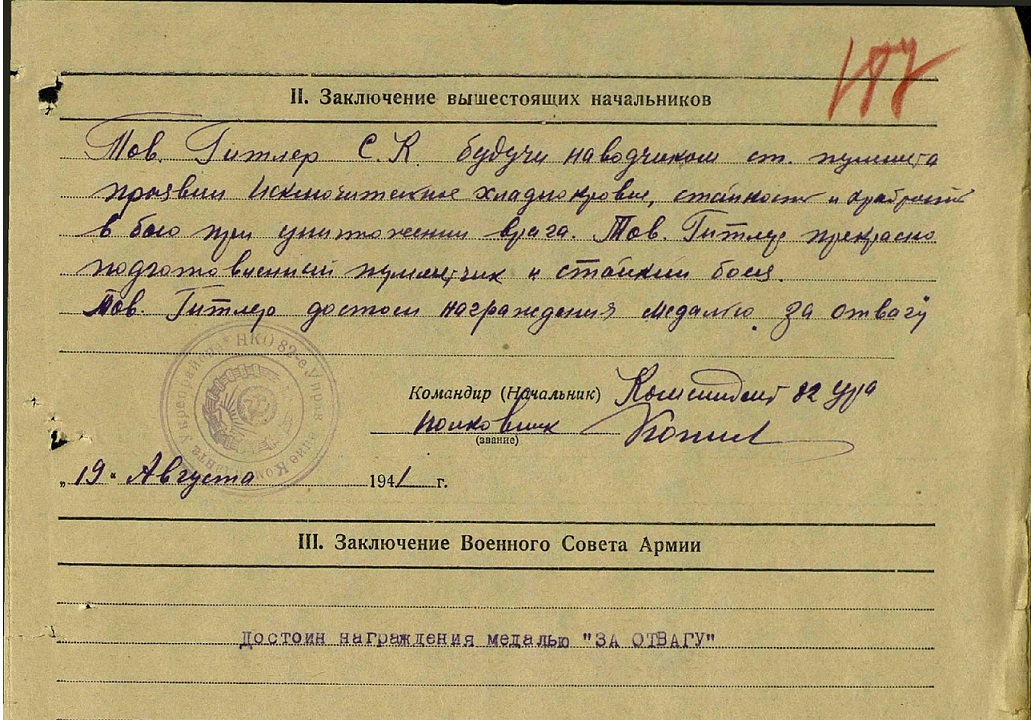 187
II. Заключение вышестоящих начальников
Тов. Гитлер С.К будучи наводчиком ст. пулемета
проявил исключительное хладнокровие, стойкость и храбрость
в бою при уничтожении врага. Тов. Гитлер прекрасно
подготовленный пулеметчик и стойкий боец.
Тов. Гитлер достоин награждения медалью "за отвагу"
Командир (Начальник) Комендант 82 ура
полковник
(звание)
"19" Августа 1941 г.
НКО 82-е Управление Коменданта Укрепрайона
III. Заключение Военного Совета Армии
Достоин награждения медалью "ЗА ОТВАГУ"